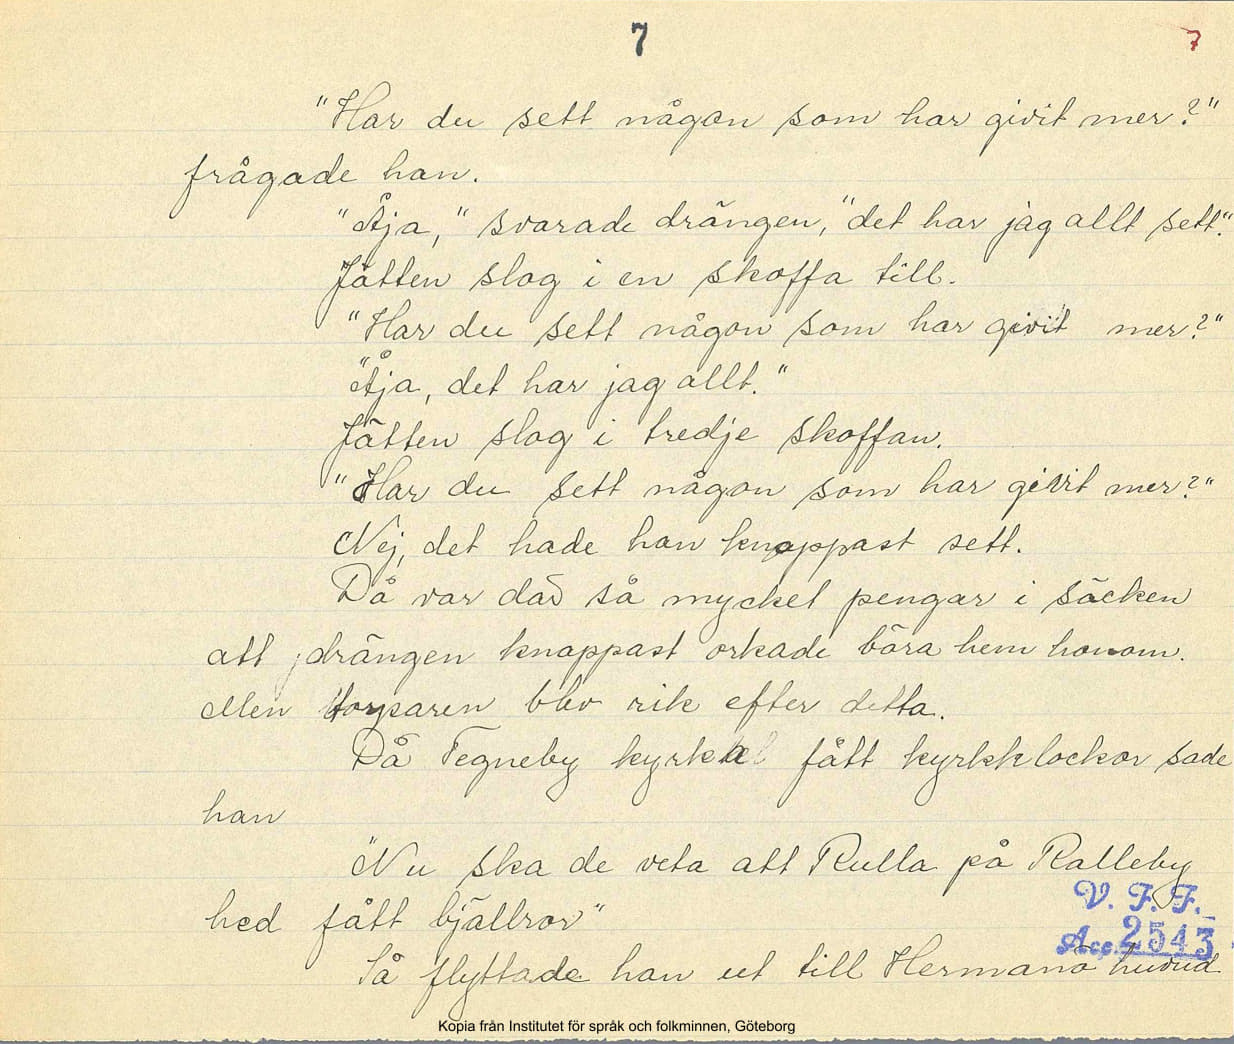 7 7
"Har du sett någon som har givit mer?"
frågade han.
"Åja," svarade drängen, "det har jag allt sett."
Jätten slog i en skoffa till.
"Har du sett någon som har givit mer?"
"Åja, det har jag allt."
Jätten slog i tredje skoffan.
"Har du sett någon som har givit mer?"
Nej, det hade han knappast sett.
Då var där så mycket pengar i säcken
att drängen knappast orkade bära hem honom.
Men torparen blev rik efter detta.
Då Tegneby kyrka fått kyrkklockor sade
han
"Nu ska de veta att Rulla på Ralleby
hed fått bjällror"
V. F. F.
Acc. 2543
Så flyttade han ut till Hermanö huvud
Kopia från Institutet för språk och folkminnen, Göteborg